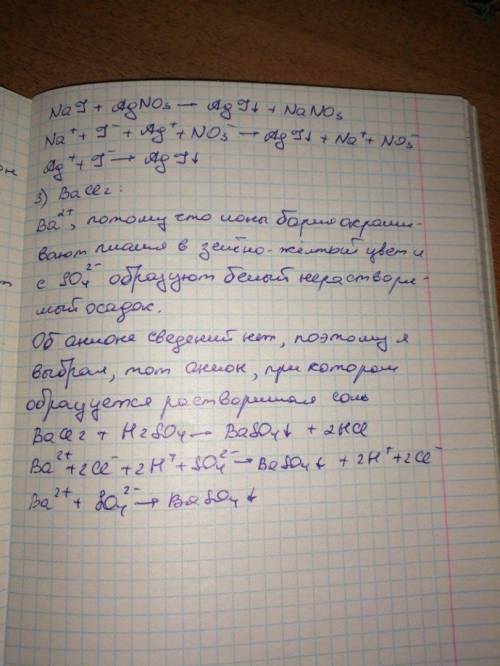 NaI + AgNO₃ → AgI↓ + NaNO₃
Na⁺ + I⁻ + Ag⁺ + NO₃⁻ → AgI↓ + Na⁺ + NO₃⁻
Ag⁺ + I⁻ → AgI↓
3) BaCl₂:
Ba²⁺, потому что ионы бария окраши-
вают пламя в зелёно-желтый цвет и
с SO₄²⁻ образуют белый нераствори-
мый осадок.
Об анионе сведений нет, поэтому я
выбрал, тот анион, при котором
образуется растворимая соль
BaCl₂ + H₂SO₄ → BaSO₄↓ + 2HCl
Ba²⁺ + 2Cl⁻ + 2H⁺ + SO₄²⁻ → BaSO₄↓ + 2H⁺ + 2Cl⁻
Ba²⁺ + SO₄²⁻ → BaSO₄↓